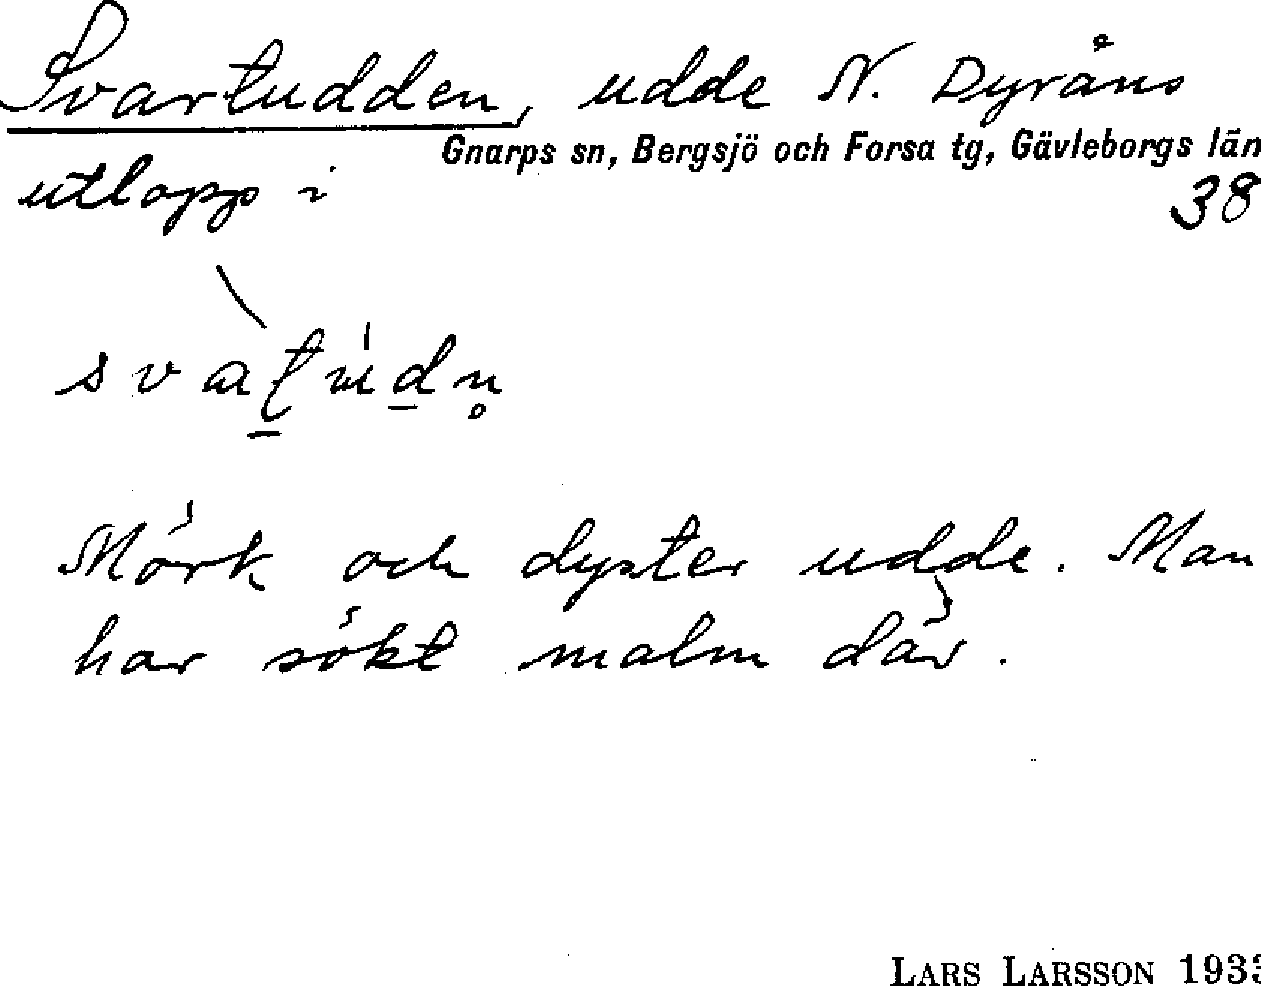 Svartudden, udde N. Dyråns
Gnarps sn, Bergsjö och Forsa tg, Gävleborgs län
utlopp i
38
Mörk och dyster udde. Man
har sökt malm där.
LARS LARSSON 193